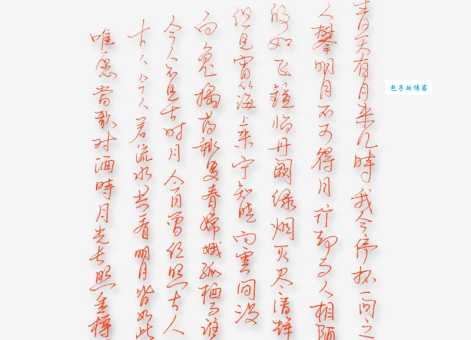 青天有月来几時我今停杯一问之
人攀明月不可得月行却与人相随
皎如飞镜临丹阙绿烟灭尽清辉
但见宵从海上来宁知晓向云间没
白兔捣药秋复春嫦娥孤栖与谁
今人不见古时月今月曾经照古人
古人今人若流水共看明月皆如此
唯愿当歌对酒時月光长照金樽